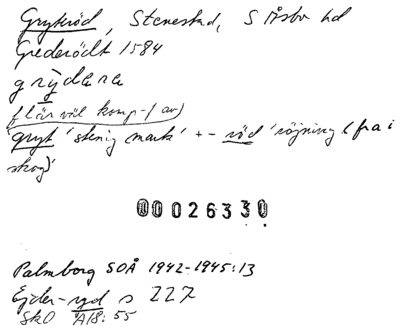 Grytteröd, Stenestad, S Åsbo hd
Grederödt 1584
grýdara
(lär väl komp-f av)
gryt 'stenig mark' +- röd 'röjning (fra i
skog)'
00026330
Palmborg SOÅ 1942-1945:13
Ejder-ryd s 227
SkO A18:55